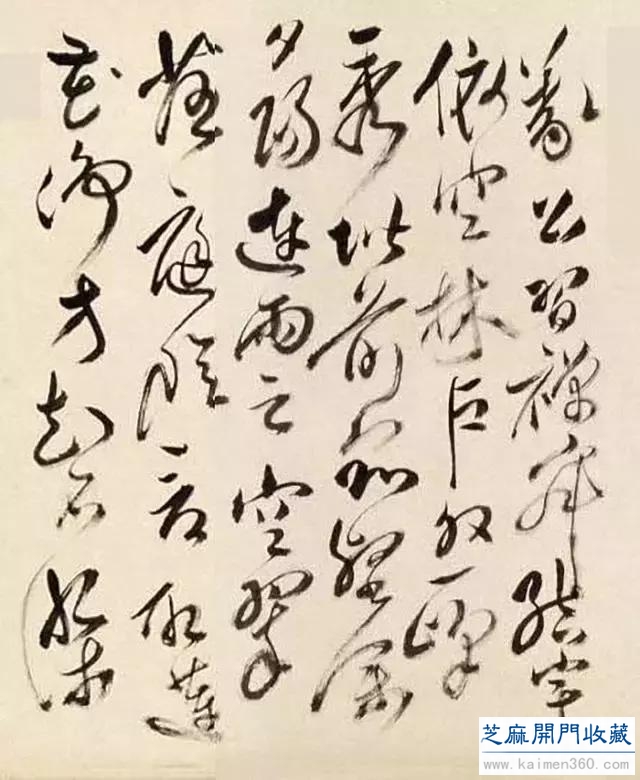 義公習禪寂結宇
依空林戶外一峰
秀堦前衆壑深
夕陽連雨足空翠
落庭陰看取蓮
花淨方知不染
芝麻開門收藏
www.kaimen360.com